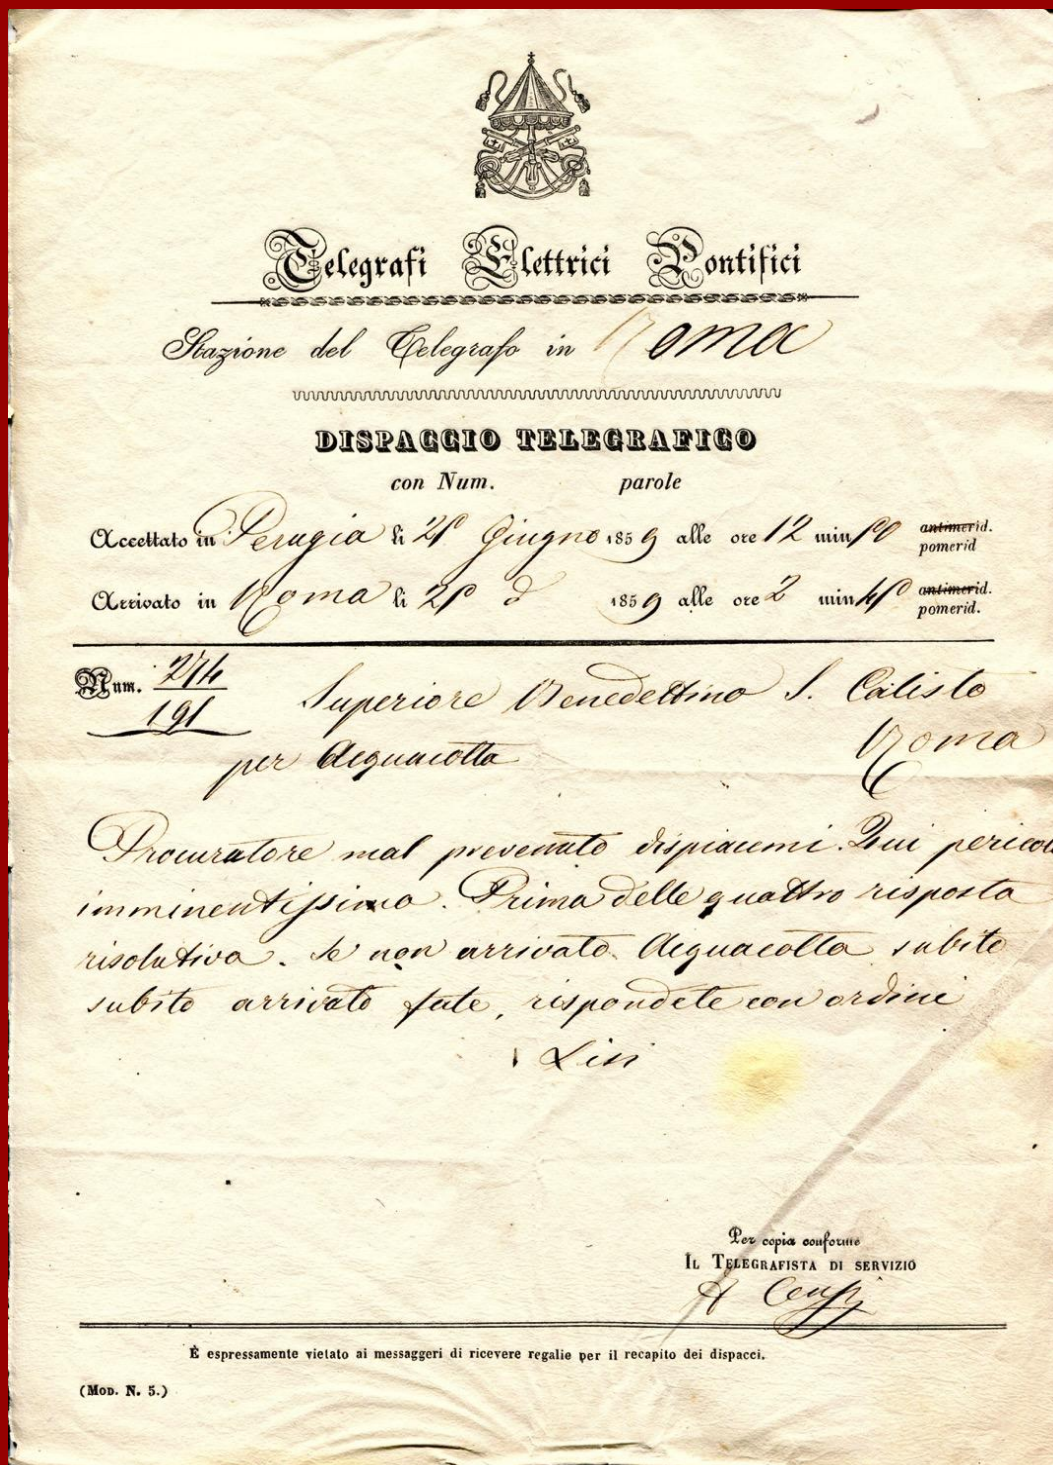 Telegrafi Elettrici Pontifici
Stazione del Telegrafo in Roma
DISPACCIO TELEGRAFICO
con Num. parole
Accettato in Perugia li Giugno 1859 alle ore 12 min antimerid.
pomerid
Arrivato in Roma li 1859 alle ore 2 min antimerid.
pomerid.
Num. 274
191
Superiore Benedettino S. Calisto
Roma
per Acquacotta
Procuratore mal prevenuto dispiacemi. Qui pericol
imminentissimo. Prima delle quattro risposta
risolutiva. Se non arrivato Acquacotta subito
subito arrivato fate, rispondete con ordini
Per copia conforme
IL TELEGRAFISTA DI SERVIZIO
È espressamente vietato ai messaggeri di ricevere regalie per il recapito dei dispacci.
(MOD. N. 5.)